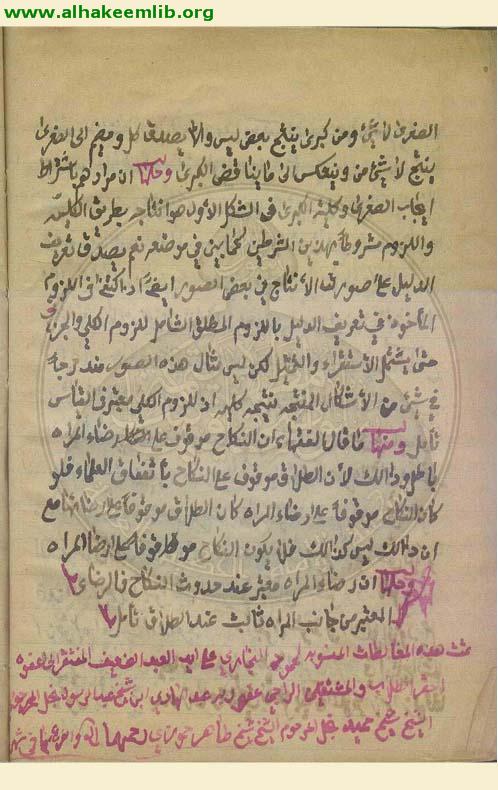 www.alhakeemlib.org
الصغرى لا شئ ومن كبرى ينتج بعض ليس والا يصدق كل ويضم الى الصغرى
ينتج لا شئ من وينعكس الى ما يناقض الكبرى وحلها ان مرادهم باشتراط
ايجاب الصغرى وكلية الكبرى فى الشكل الأول هو انتاجه بطريق الكلية
واللزوم مشروط بهذين الشرطين كما بين في موضعه نعم يصدق تعريف
الدليل على صورت الأنتاج في بعض الصور ايضًا اذ اكتفى في اللزوم
المأخوذ في تعريف الدليل باللزوم المطلق الشامل للزوم الكلي والجزئي
حتى يشتمل الأستقراء والتمثيل لكن ليس مثال هذه الصور مندرجة
في شئ من الأشكال المنتجه نتيجه كليه اذ للزوم الكلي معتبر في القياس
تأمل ومنها ما قال الفقهاء ان النكاح موقوف على رضاء المراه
باطل وذالك لأن الطلاق موقوف على النكاح بأتفاق العلماء فلو
كان النكاح موقوفة على رضاء المراه كان الطلاق موقوفا على رضائها مع
ان ذالك ليس كذالك فلا يكون النكاح موقوفا على رضا المراه
وحلها ان رضاء المراه معتبر عند حدوث النكاح فالرضاء
المعتبر من جانب المراه ثالث عند الطلاق تأمل
تمت هذه المغالطات المنسوبه البخاري على يد العبد الضعيف المفتقر الى عفوه
احقر الطلاب عفو ربه عبد الهادي ابن شيخ عبد الرسول نجل المرحوم
الشيخ شيخ نجل المرحوم الشيخ شيخ طاهر